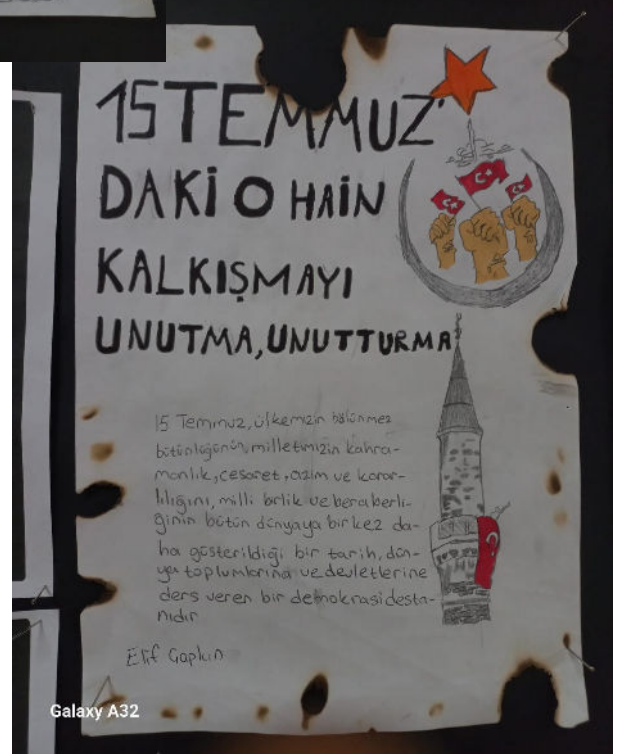 15 TEMMUZ'
DAKİ O HAİN
KALKIŞMAYI
UNUTMA, UNUTTURMA
15 Temmuz, ülkemizin bölünmez
bütünlüğünün, milletimizin kahra-
manlık, cesaret, azim ve karar-
lılığını, milli birlik ve beraberli-
ğinin bütün dünyaya bir kez da-
ha gösterildiği bir tarih, dün-
ya toplumlarına ve devletlerine
ders veren bir demokrasi desta-
nıdır
Elif Gapkın
Galaxy A32